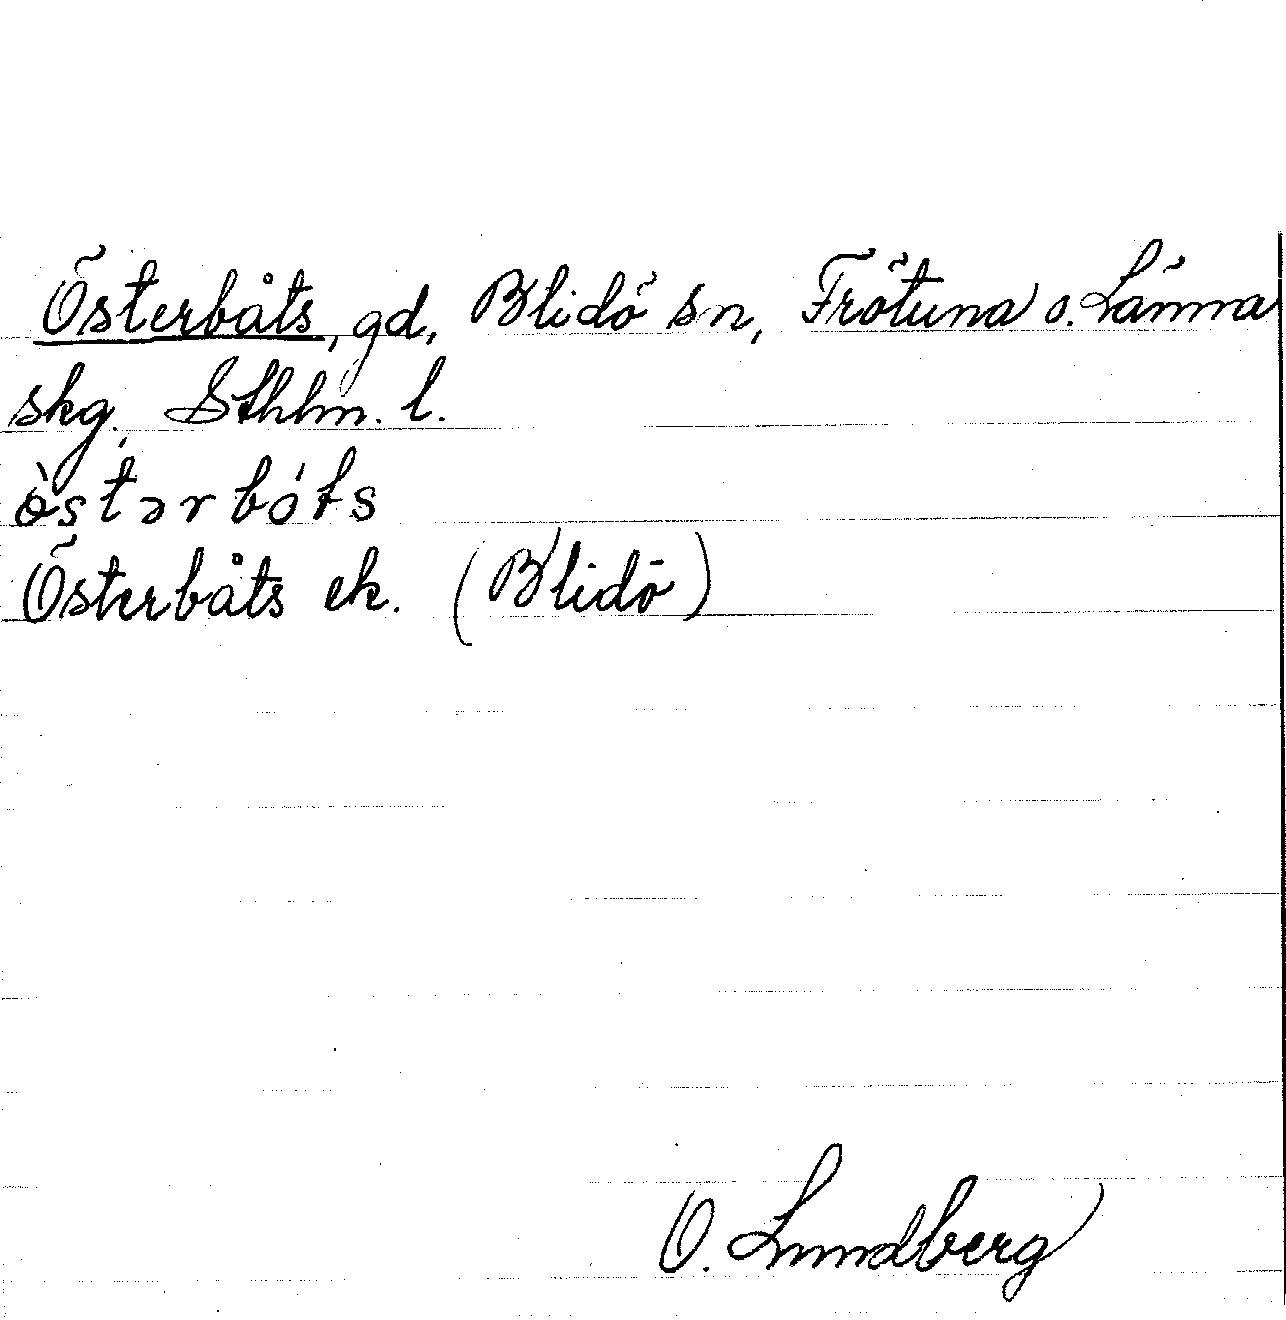 Österbåts, gd, Blidö sn, Frötuna o. Länna
skg, Sthlm. l.
ö̀stərbóts
Österbåts ek. (Blidö)
O. Lundberg